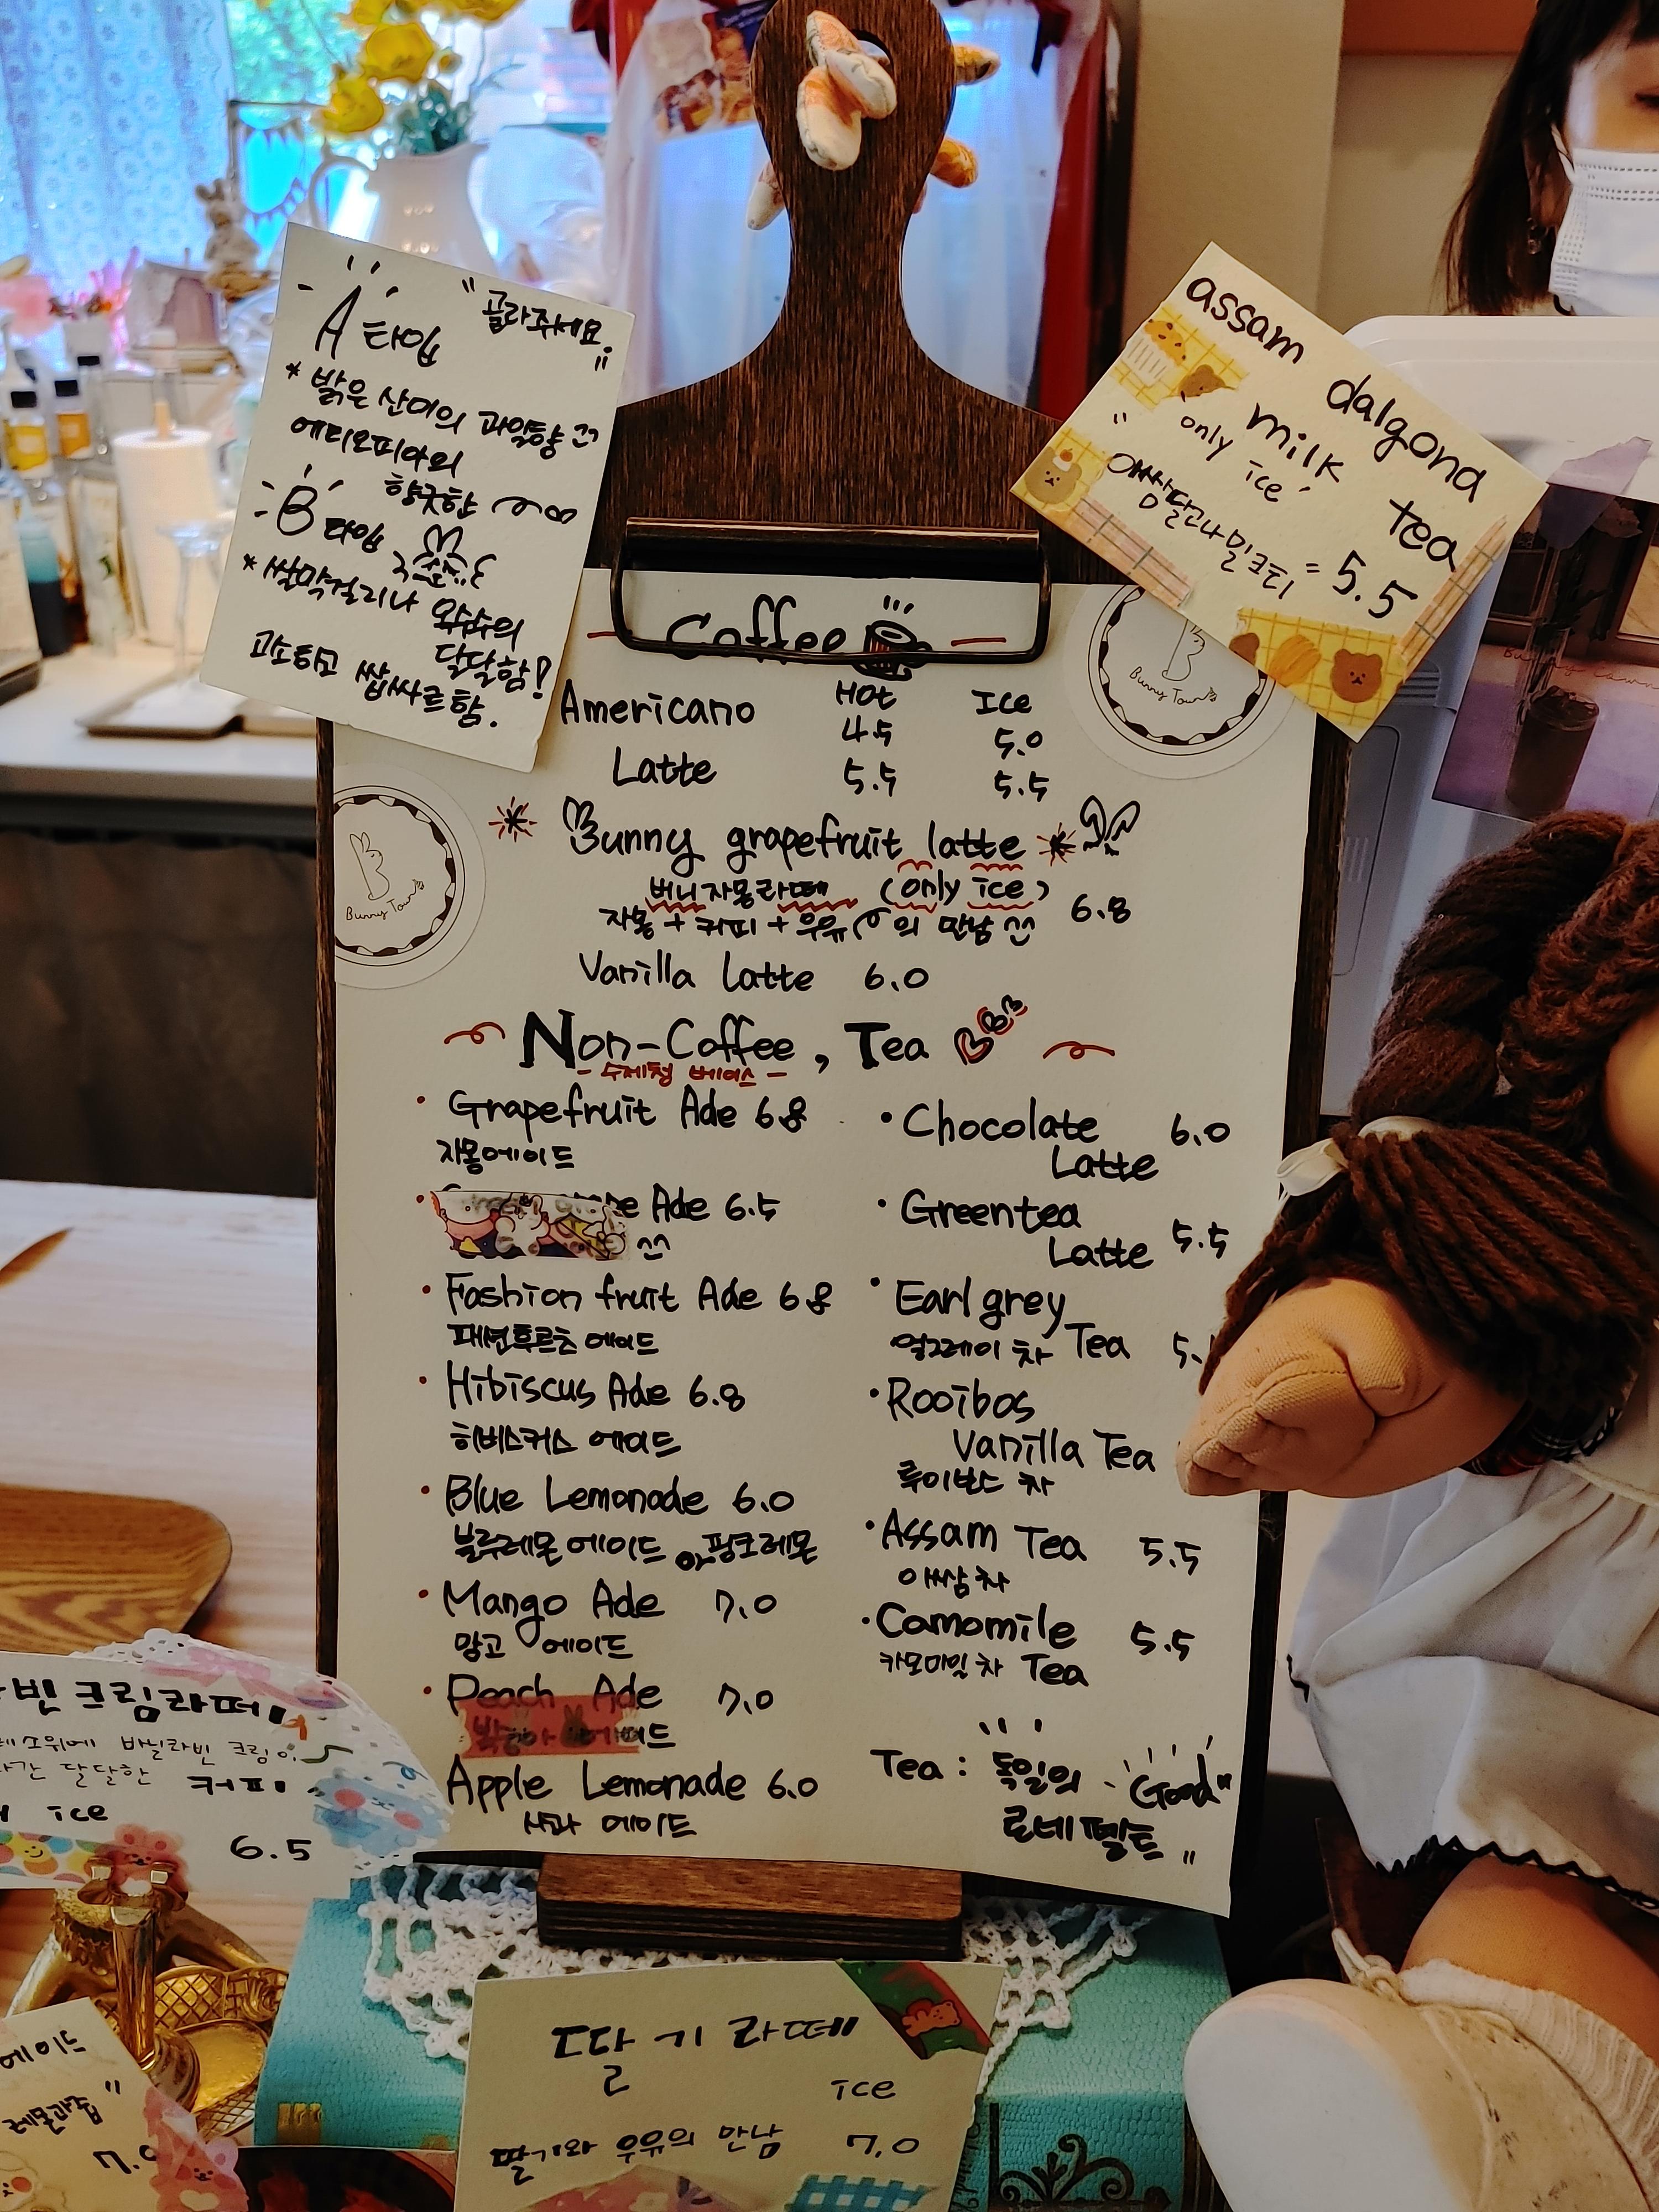 A 타입 "골라주세요."
* 밝은 산미의 과일향
에티오피아의
향긋한
B 타입
* 쌀막걸리나 옥수수의
달달함!
고소하고 쌉싸르함.
assam dalgona
milk tea
"only ice"
아쌈달고나밀크티 = 5.5
Coffee
Hot Ice
Americano 4.5 5.0
Latte 5.5 5.5
Bunny Town
Bunny Town
Bunny grapefruit latte
버니자몽라떼 (only ice)
자몽 + 커피 + 우유의 만남 6.8
Vanilla latte 6.0
Non-Coffee, Tea
- 수제청 베이스 -
· Grapefruit Ade 6.8
자몽에이드
· Ade 6.5
· Fashion fruit Ade 6.8
패션후르츠 에이드
· Hibiscus Ade 6.8
히비스커스 에이드
· Blue Lemonade 6.0
블루레몬에이드 or 핑크레몬
· Mango Ade 7.0
망고 에이드
· Peach Ade 7.0
Apple Lemonade 6.0
사과 에이드
· Chocolate 6.0
Latte
· Greentea
Latte 5.5
· Earl grey
얼그레이 차 Tea 5.
· Rooibos
Vanilla Tea
루이보스 차
· Assam Tea 5.5
아쌈차
· Camomile 5.5
카모마일차 Tea
Tea : 독일의 "Good"
로네펠트"
빈크림라떼
위에 바닐라빈 크림이
달달한 커피
ice
6.5
에이드
레몬과즙"
7.0
딸기라떼
ice
딸기와 우유의 만남 7.0